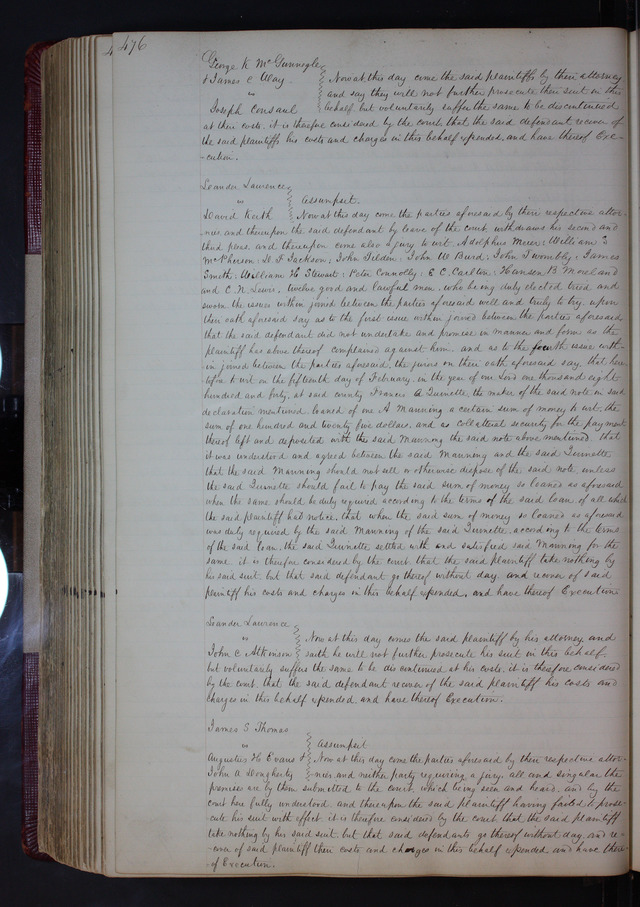 476
George K McGunnegle
& James C Way
"
Joseph Consaul
Now at this day come the said plaintiffs by their attorney
and say they will not further prosecute their suit in this
behalf but voluntarily suffer the same to be discontinued
at their costs. it is therefore considered by the court that the said defendant recover of
the said plaintiffs his costs and charges in this behalf expended, and have thereof Exe-
-cution.
Leander Lawrence
"
David Keith
Assumpsit.
Now at this day come the parties aforesaid by their respective attor-
nies and thereupon the said defendant by leave of the court withdraws his second and
third pleas. and thereupon come also a jury to wit, Adolphus Meier: William S
McPherson: D. F Jackson: John Tilden: John W Burd: John Twombly: James
Smith: William H Stewart: Peter Connolly: E C Carlton: Hansen B Moreland
and C. N. Lewis. twelve good and lawful men, who being duly elected tried, and
sworn the issues within joined between the parties aforesaid well and truly to try. upon
their oath aforesaid say as to the first issue within joined between the parties aforesaid,
that the said defendant did not undertake and promise in manner and form as the
plaintiff has above thereof complained against him. and as to the fourth issue with-
in joined between the parties aforesaid, the jurors on their oath aforesaid say, that here-
tofore to wit on the fifteenth day of February in the year of our Lord one thousand eight
hundred and forty, at said county Francis A Quinette the maker of the said note in said
declaration mentioned loaned of one A Manning a certain sum of money to wit, the
sum of one hundred and twenty five dollars, and as collateral security for the payment
thereof left and deposited with the said Manning the said note above mentioned. that
it was understood and agreed between the said Manning and the said Quinette
that the said Manning should not sell or otherwise dispose of the said note unless
the said Quinette should fail to pay the said sum of money so loaned as aforesaid
when the same should be duly required according to the terms of the said loan of all which
the said plaintiff had notice. that when the said sum of money so loaned as aforesaid
was duly required by the said Manning of the said Quinette according to the terms
of the said loan, the said Quinette settled with and satisfied said Manning for the
same. it is therefore considered by the court that the said plaintiff take nothing by
his said suit but that said defendant go thereof without day and recover of said
plaintiff his costs and charges in this behalf expended, and have thereof Execution
Leander Lawrence
"
John C Atkinson
Now at this day comes the said plaintiff by his attorney and
saith he will not further prosecute his suit in this behalf.
but voluntarily suffers the same to be discontinued at his costs. it is therefore considered
by the court that the said defendant recover of the said plaintiff his costs and
charges in this behalf expended and have thereof Execution.
James S Thomas
"
Augustus H Evans &
John A Dougherty
Assumpsit
Now at this day come the parties aforesaid by their respective attor-
-nies and neither party requiring a jury. all and singular the
premises are by them submitted to the court, which being seen and heard, and by the
court here fully understood and thereupon the said plaintiff having failed to prose-
cute his suit with effect it is therefore considered by the court that the said plaintiff
take nothing by his said suit, but that said defendants go thereof without day and re-
-cover of said plaintiff their costs and charges in this behalf expended and have there-
-of Execution.